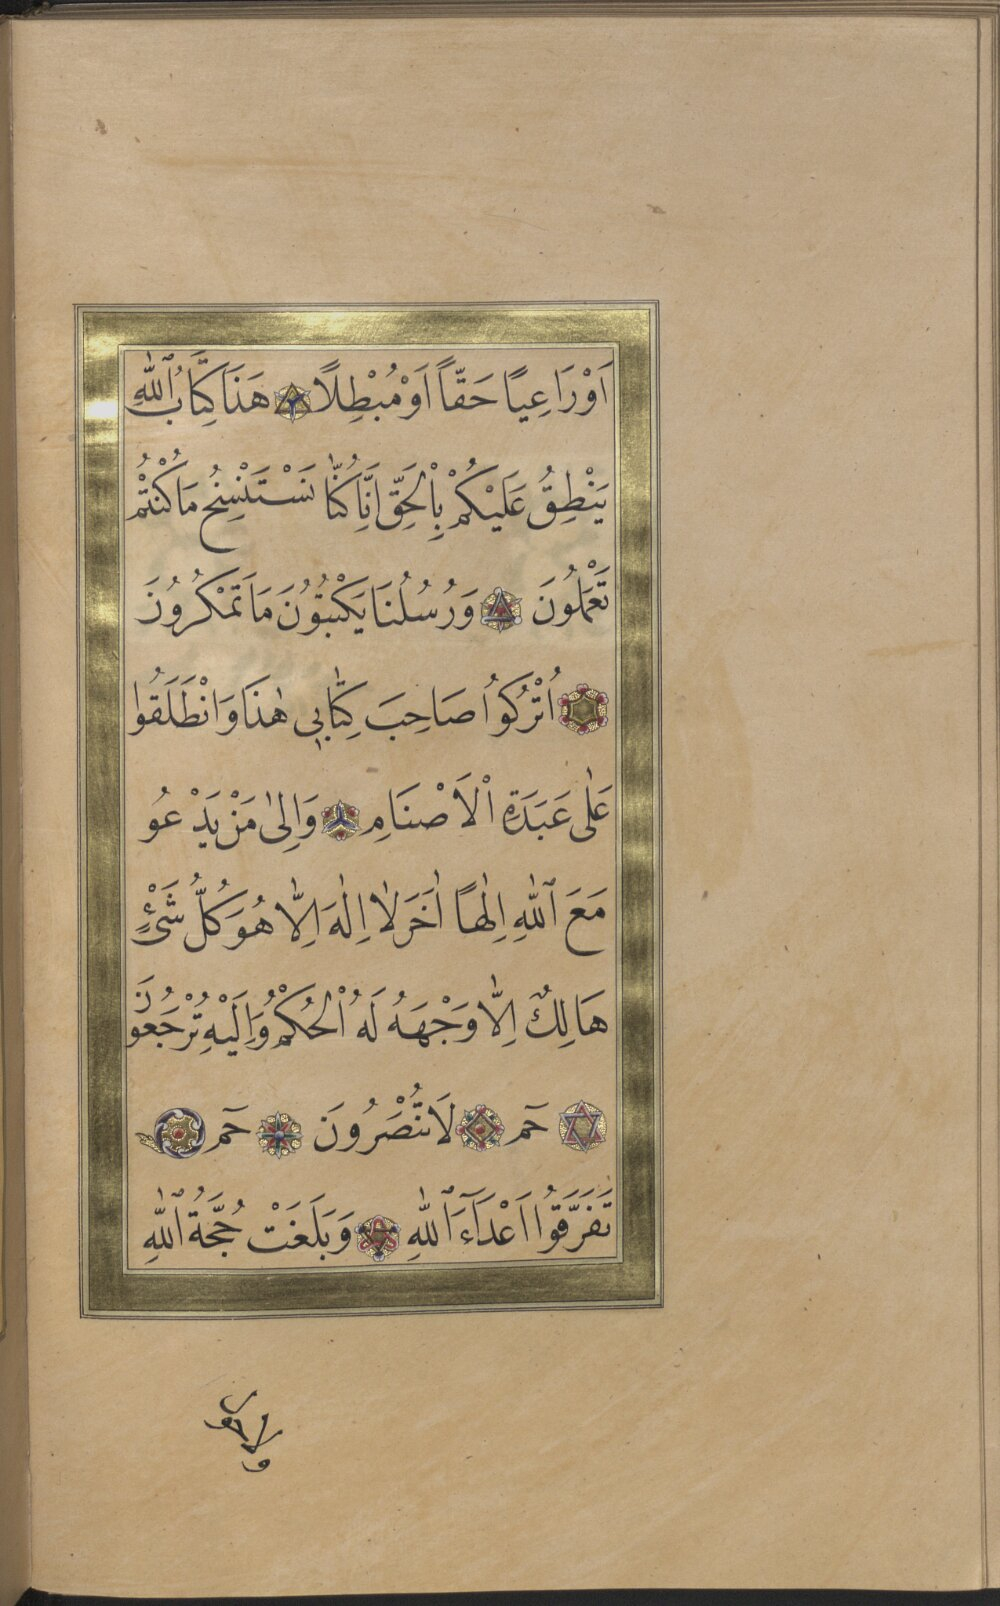 اَوْرَاعِيًا حَقّاً اَوْمُبْطِلًا هَذَا كِتَابُ اللّٰهِ
يَنْطِقُ عَلَيْكُمْ بِالْحَقِّ اِنَّا كُنَّا نَسْتَنْسِخُ مَا كُنْتُمْ
تَعْمَلُونَ وَرُسُلُنَا يَكْتُبُونَ مَا تَمْكُرُونَ
اُتْرُكُوا صَاحِبَ كِتَابِي هٰذَا وَانْطَلَقُوا
عَلٰى عَبَدَةِ الْاَصْنَامِ وَاِلٰى مَنْ يَدْعُو
مَعَ اللّٰهِ اِلٰهًا اٰخَرَ لٰا اِلٰهَ اِلَّا هُوَ كُلُّ شَيْءٍ
هَالِكٌ اِلَّا وَجْهَهُ لَهُ الْحُكْمُ وَاِلَيْهِ تُرْجَعُونَ
حٓم لَا تُنْصَرُونَ حٓم
تَفَرَّقُوا اَعْدَآءَ اللّٰهِ وَبَلَغَتْ حُجَّةُ اللّٰهِ